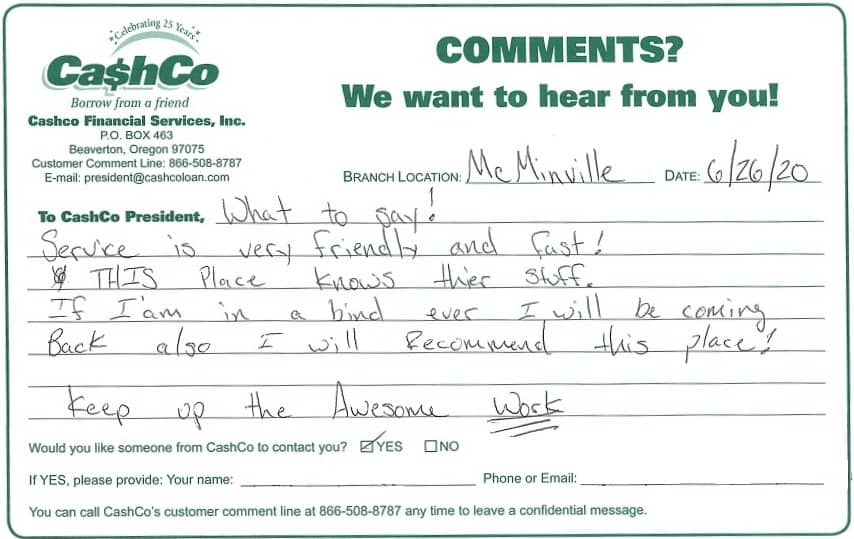 Celebrating 25 Years
Ca$hCo
Borrow from a friend
Cashco Financial Services, Inc.
P.O. BOX 463
Beaverton, Oregon 97075
Customer Comment Line: 866-508-8787
E-mail: president@cashcoloan.com
COMMENTS?
We want to hear from you!
BRANCH LOCATION: McMinville DATE: 6/26/20
To CashCo President, What to say!
Service is very friendly and fast!
THIS Place knows thier stuff.
If I'am in a bind ever I will be coming
Back also I will Recommend this place!
Keep up the Awesome Work
Would you like someone from CashCo to contact you? ☑YES ☐NO
If YES, please provide: Your name: Phone or Email:
You can call CashCo's customer comment line at 866-508-8787 any time to leave a confidential message.